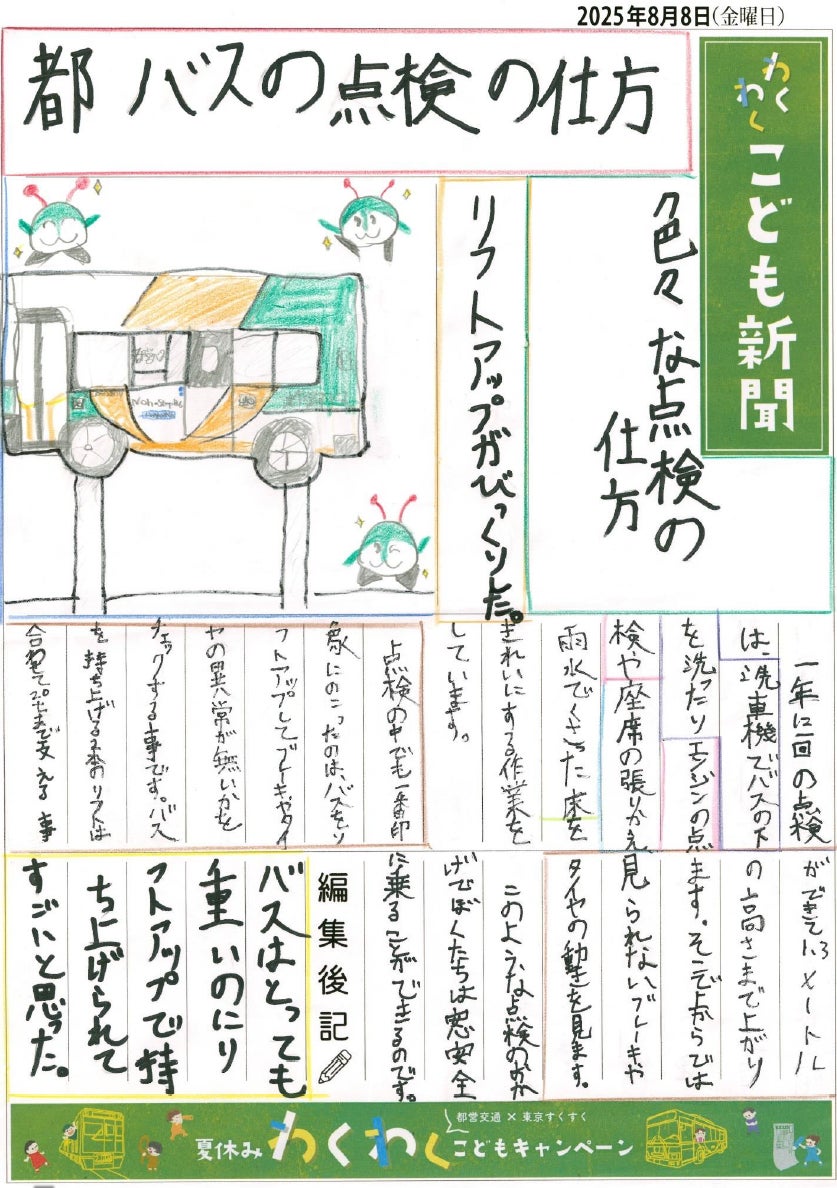 2025年8月8日(金曜日)
わくわくこども新聞
都バスの点検の仕方
色々な点検の
仕方
リフトアップがびっくりした。
Non-Step Bus
一年に一回の点検
は、洗車機でバスの下
を洗ったりエンジンの点
検や座席の張りかえ
雨水でくさった床を
きれいにする作業を
しています。
点検の中でも一番印
象にのこったのは、バスをリ
フトアップしてブレーキやタイ
ヤの異常が無いかを
チェックする事です。バス
を持ち上げる2本のリフトは
合わせて
まで支える事
ができて1.3メートル
の高さまで上がり
ます。そこで上からでは
見られないブレーキや
タイヤの動きを見ます。
このような点検のおか
げでぼくたちは
安全
に乗ることができるのです。
編集後記
バスはとっても
重いのにリ
フトアップで持
ち上げられて
すごいと思った。
都営交通×東京すくすく
夏休みわくわくこどもキャンペーン